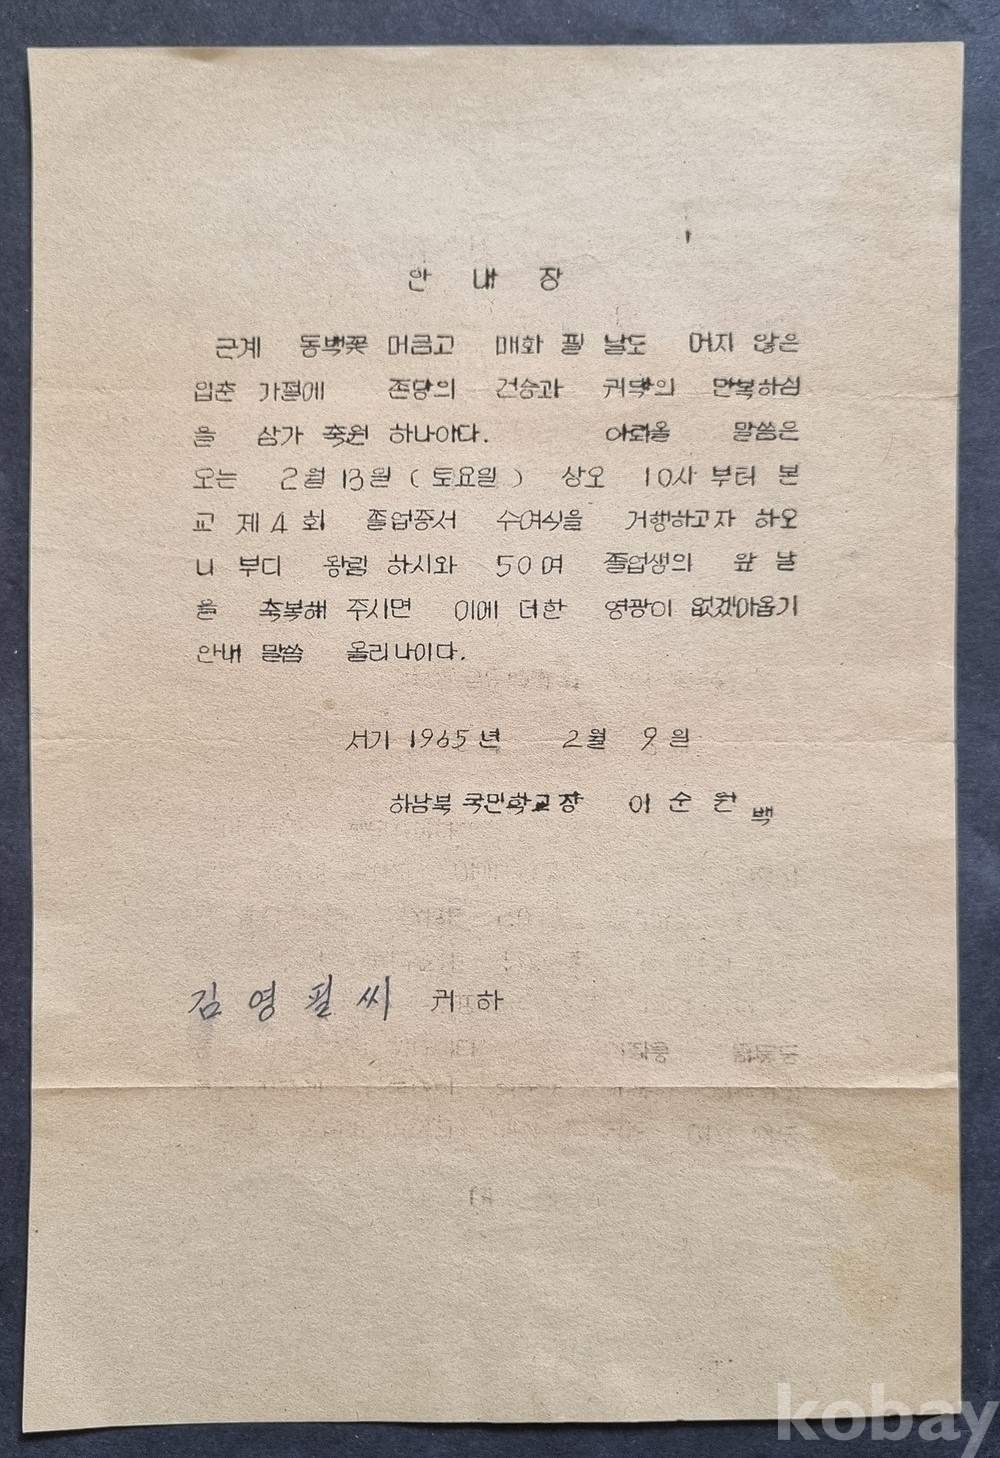 안 내 장
근계 동백꽃 머금고 매화 필 날도 머지 않은
입춘 가절에 존당의 건승과 귀댁의 만복하심
을 삼가 축원 하나이다. 아뢰올 말씀은
오는 2월 13월 (토요일) 상오 10시 부터 본
교 제4회 졸업증서 수여식을 거행하고자 하오
니 부디 왕림 하시와 50여 졸업생의 앞 날
을 축복해 주시면 이에 더한 영광이 없겠아옵기
안내 말씀 올리나이다.
서기 1965년 2월 9일
하남북 국민학교장 이 순 원 백
김 영 필 씨 귀 하
kobay